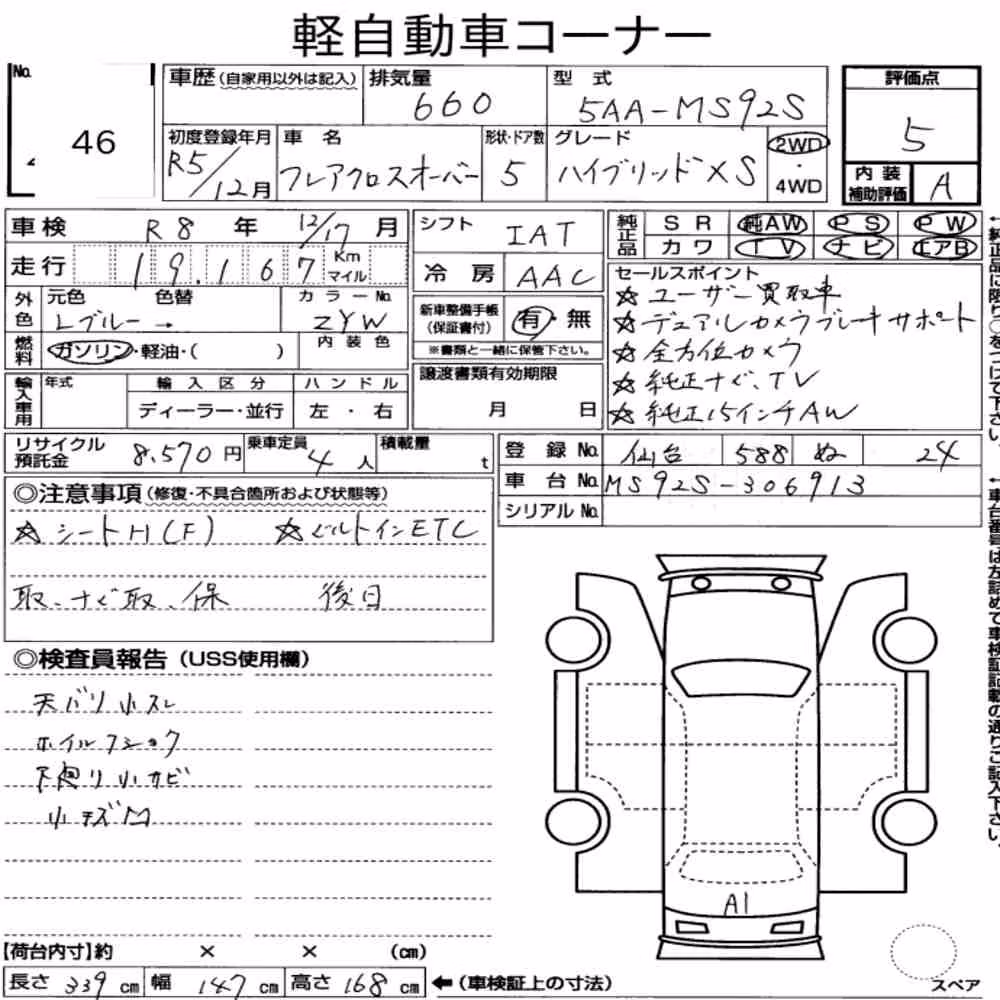 軽自動車コーナー
No. 46
車歴(自家用以外は記入) 排気量 660 型式 5AA-MS92S
評価点 5
初度登録年月 R5/12月 車名 フレアクロスオーバー 形状・ドア数 5 グレード ハイブリッドXS 2WD・4WD
内装補助評価 A
車検 R8年 12/17月
シフト IAT
純正品 SR 純AW PS PW
カワ TV ナビ エアB
走行 19,167 Km マイル
冷房 AAC
外色 元色 Lブルー 色替 → カラーNo. ZYW
新車整備手帳(保証書付) 有・無
※書類と一緒に保管下さい。
セールスポイント
☆ユーザー買取車
☆デュアルカメラブレーキサポート
☆全方位カメラ
☆純正ナビ、TV
☆純正15インチAW
燃料 ガソリン・軽油・( ) 内装色
輸入車用 年式 輸入区分 ハンドル
ディーラー・並行 左・右
譲渡書類有効期限
月 日
リサイクル預託金 8,570円 乗車定員 4人 積載量 t
登録No. 仙台 588 ぬ 24
車台No. MS92S-306913
シリアルNo.
◎注意事項(修復・不具合箇所および状態等)
☆シートH(F) ☆ビルトインETC
取、ナビ取、保 後日
◎検査員報告(USS使用欄)
天バリ小スレ
ホイルフショク
下廻り小サビ
小キズ凹
A1
【荷台内寸】約 × × (cm)
長さ 339cm 幅 147cm 高さ 168cm ←(車検証上の寸法)
スペア
←純正品に限り○をつけて下さい。
←車台番号は左詰めで車検証記載の通りご記入下さい。